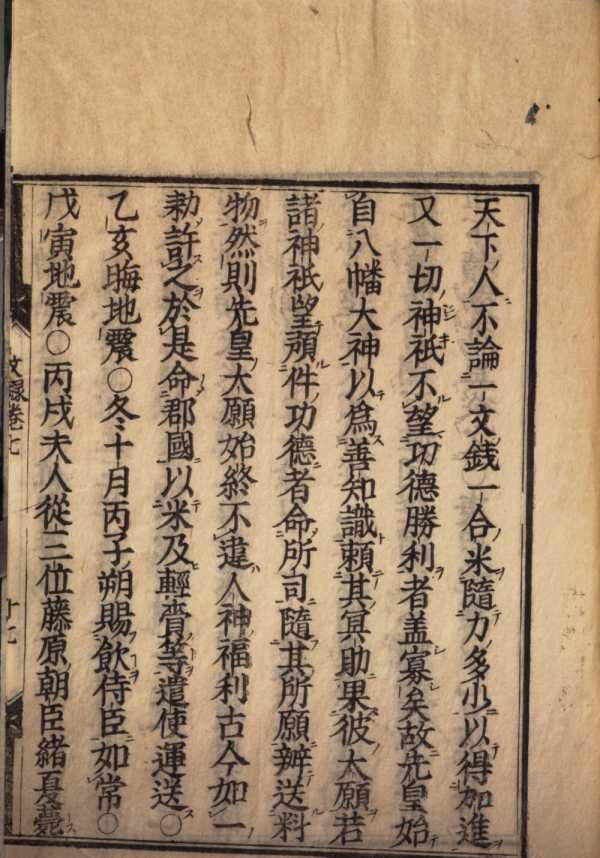 天下人不論一文銭一合米隨力多少以得加進
又一切神祇不望功德勝利者盖寡矣故先皇始
自八幡大神以爲善知識頼其冥助果彼大願若
諸神祇望預件功德者命所司隨其所願辨送料
物然則先皇大願始終不違人神福利古今如一
勅許之於是命郡國以米及輕賫等遣使運送○
乙亥晦地震○冬十月丙子朔賜飲侍臣如常○
戊寅地震○丙戌夫人從三位藤原朝臣緒夏薨
文録卷七
十七